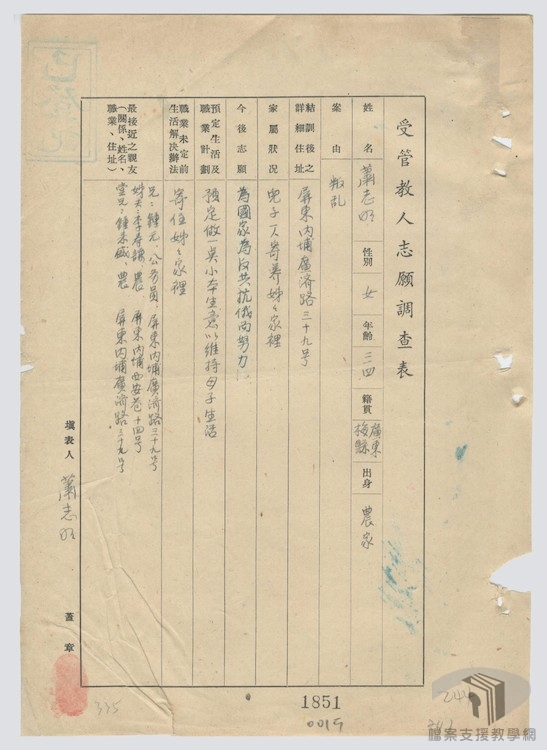 受管教人志願調查表
姓名 蕭志明 性別 女 年齡 三四 籍貫 廣東梅縣 出身 農家
案由 叛乱
結訓後之詳細住址 屏東內埔廣濟路三十九号
家屬狀況 兒子一人寄养姊々家裡
今後志願 為國家為反共抗俄而努力
預定生活及職業計劃 預定做一奌小本生意以維持母子生活
職業未定前生活解决辦法 寄住姊々家裡
最接近之親友(關係、姓名、職業、住址) 兄:鍾元 公务員 屏東內埔廣濟路三十九号
姊夫:李春 農 屏東內埔西安巷十四号
堂兄:鍾 農 屏東內埔廣濟路三十九号
塡表人 蕭志明 蓋章
335
1851
0019
244
檔案支援教學網